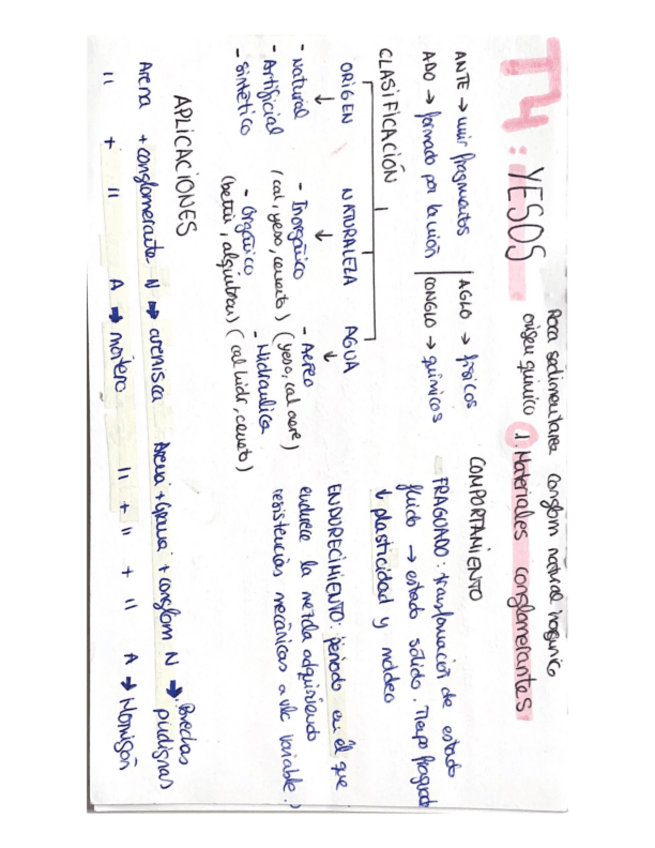 T4: YESOS
Roca sedimentaria conglom natural inorgánico
origen químico 1. Materiales conglomerantes
ANTE → unir fragmentos | AGLO → físicos
ADO → formado por la unión | CONGLO → químicos
CLASIFICACIÓN
ORIGEN NATURALEZA AGUA
↓ ↓ ↓
- Natural
- Artificial
- Sintético
- Inorgánico
(cal, yeso, cemento)
- Orgánico
(betún, alquitran)
- Aereo
(yeso, cal aere)
- Hidraulica
(cal hidr, cemeto)
COMPORTAMIENTO
- FRAGUADO: transformación de estado
fluido → estado sólido. Tiempo fraguado
↓ plasticidad y moldeo
ENDURECIMIENTO: periodo en él que
endurece la mezcla adquiriendo
resistencias mecánicas a vlc variable.
APLICACIONES
Arena + conglomerante N → arenisca
Arena + Grava + conglom N → Brechas
pudignas
" + " A → mortero
" + " + " A → Hormigón